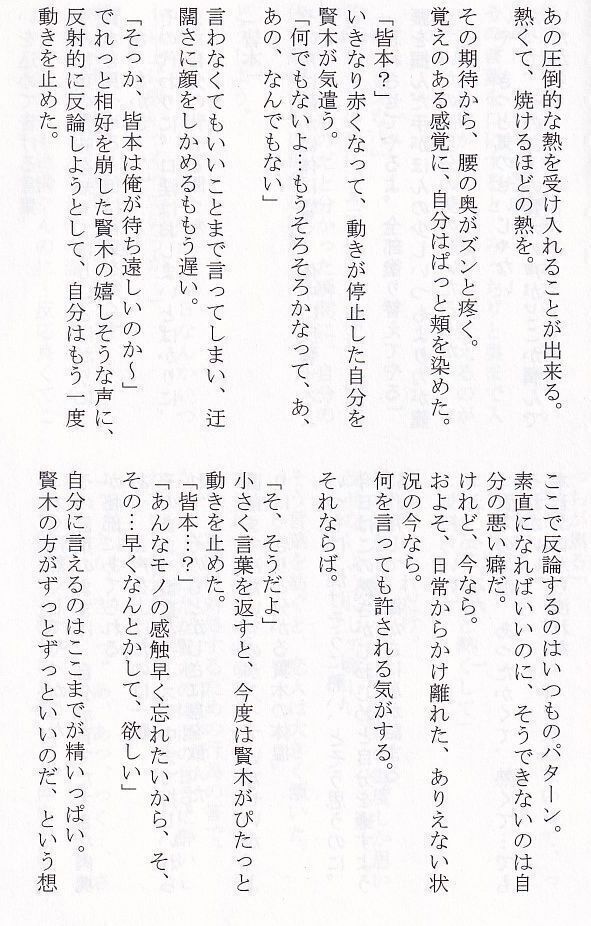 あの圧倒的な熱を受け入れることが出来る。
熱くて、焼けるほどの熱を。
その期待から、腰の奥がズンと疼く。
覚えのある感覚に、自分はぱっと頬を染めた。
「皆本？」
いきなり赤くなって、動きが停止した自分を
賢木が気遣う。
「何でもないよ…もうそろそろかなって、あ、
あの、なんでもない」
言わなくてもいいことまで言ってしまい、迂
闊さに顔をしかめるももう遅い。
「そっか、皆本は俺が待ち遠しいのか～」
でれっと相好を崩した賢木の嬉しそうな声に、
反射的に反論しようとして、自分はもう一度
動きを止めた。
ここで反論するのはいつものパターン。
素直になればいいのに、そうできないのは自
分の悪い癖だ。
けれど、今なら。
およそ、日常からかけ離れた、ありえない状
況の今なら。
何を言っても許される気がする。
それならば。
「そ、そうだよ」
小さく言葉を返すと、今度は賢木がぴたっと
動きを止めた。
「皆本…？」
「あんなモノの感触早く忘れたいから、そ、
その…早くなんとかして、欲しい」
自分に言えるのはここまでが精いっぱい。
賢木の方がずっとずっといいのだ、という想